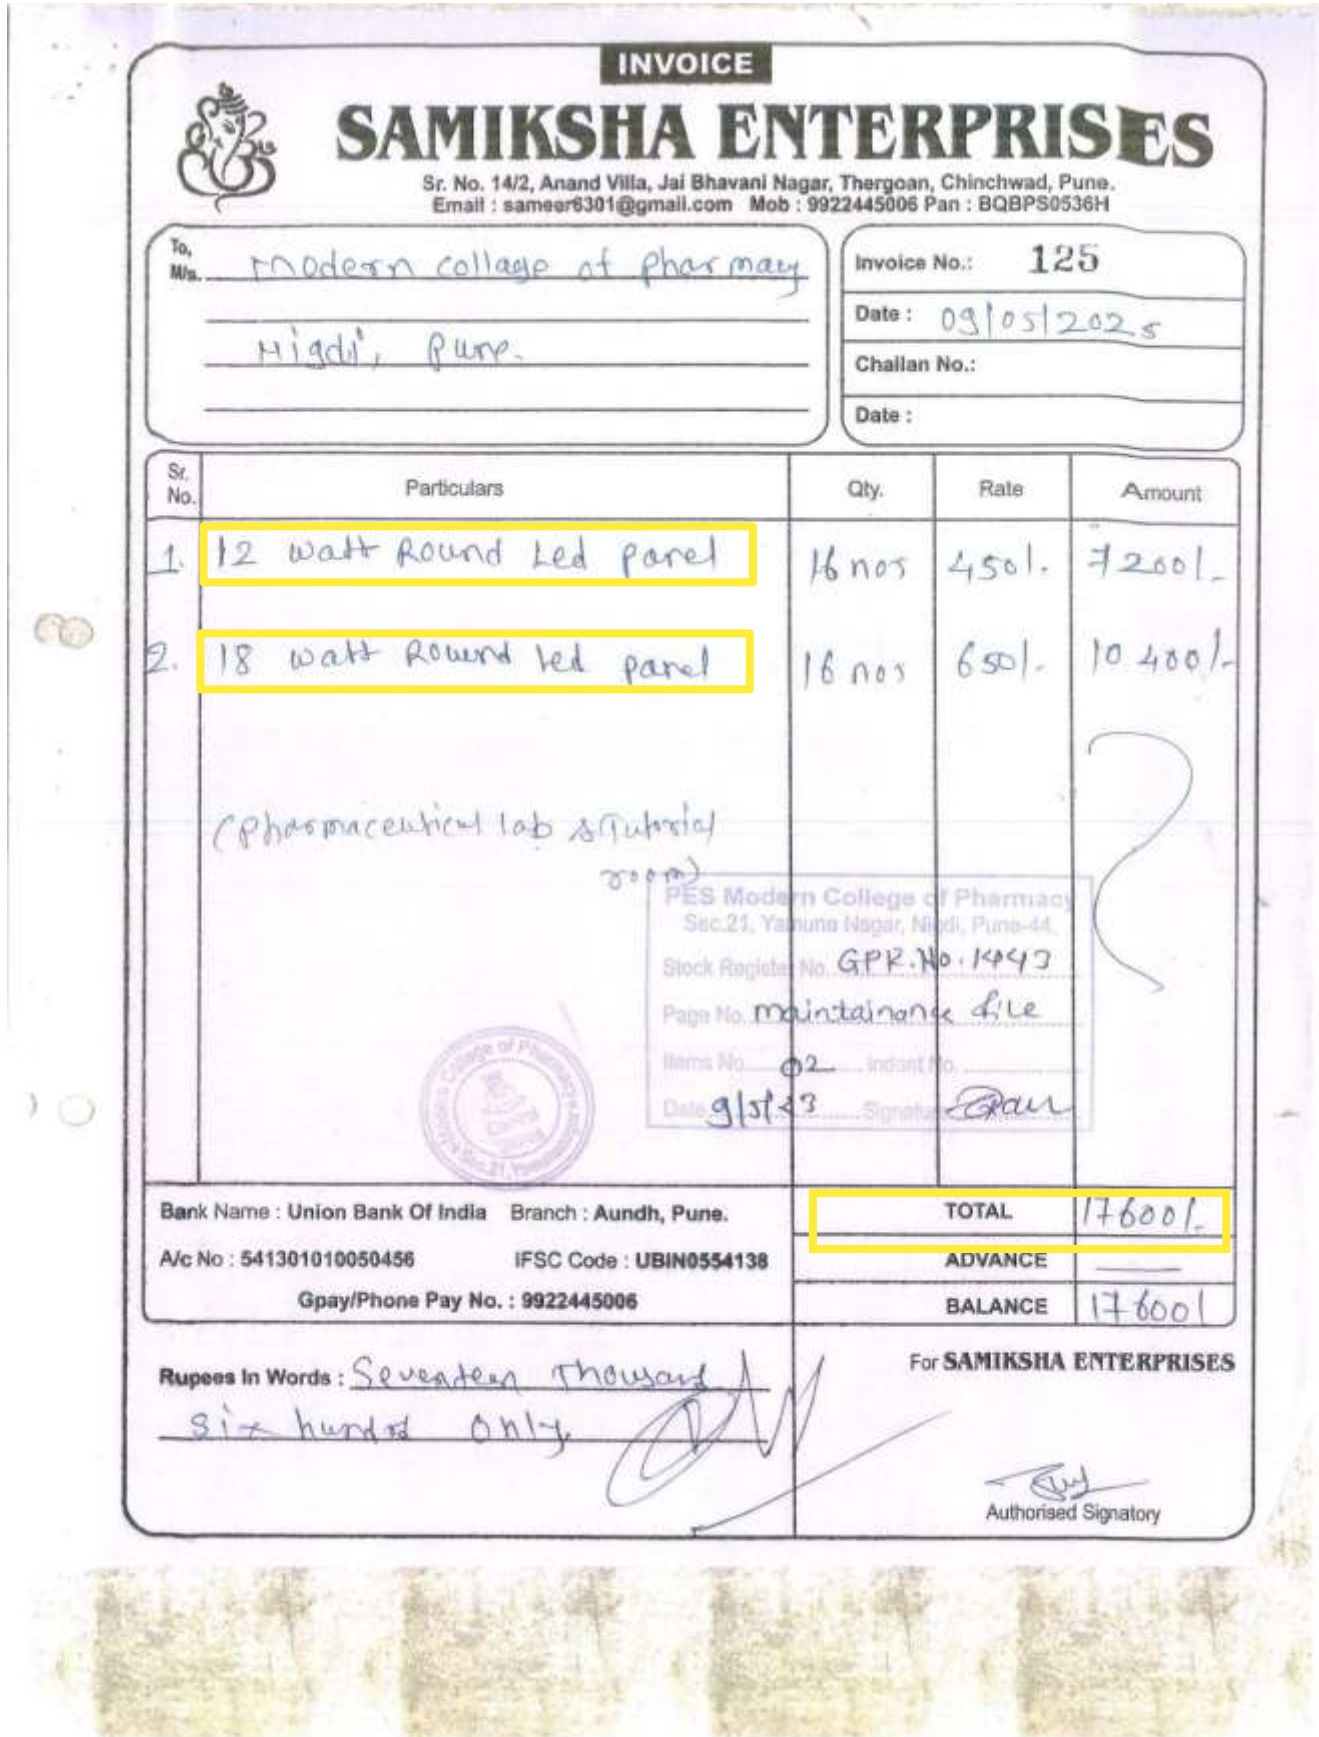 INVOICE
SAMIKSHA ENTERPRISES
Sr. No. 14/2, Anand Villa, Jai Bhavani Nagar, Thergoan, Chinchwad, Pune.
Email : sameer6301@gmail.com Mob : 9922445006 Pan : BQBPS0536H
To,
M/s. Modern collage of pharmacy
Nigdi, Pune.
Invoice No.: 125
Date : 09/05/2025
Challan No.:
Date :
Sr. No. Particulars Qty. Rate Amount
1. 12 watt Round Led panel 16 nos 450/- 7200/-
2. 18 watt Round led panel 16 nos 650/- 10400/-
(pharmaceutical lab & Tutorial
room)
PES Modern College of Pharmacy
Sec.21, Yamuna Nagar, Nigdi, Pune-44.
Stock Register No. GPR.No.1443
Page No. maintainance file
Items No. 02 Indent No.
Date 9/5/23 Signature
Bank Name : Union Bank Of India Branch : Aundh, Pune.
A/c No : 541301010050456 IFSC Code : UBIN0554138
Gpay/Phone Pay No. : 9922445006
TOTAL 17600/-
ADVANCE —
BALANCE 17600/
Rupees In Words : Seventeen Thousand
six hundrd only.
For SAMIKSHA ENTERPRISES
Authorised Signatory